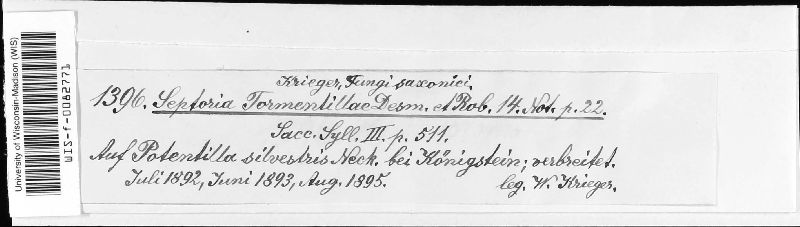 University of Wisconsin-Madison (WIS)
WIS-f-0082771
Krieger, Fungi saxonici.
1396. Septoria Tormentillae Desm. et Rob. 14. Not. p. 22.
Sacc. Syll. III. p. 511.
Auf Potentilla silvestris Neck. bei Königstein; verbreitet.
Juli 1892, Juni 1893, Aug. 1895.
leg. W. Krieger.